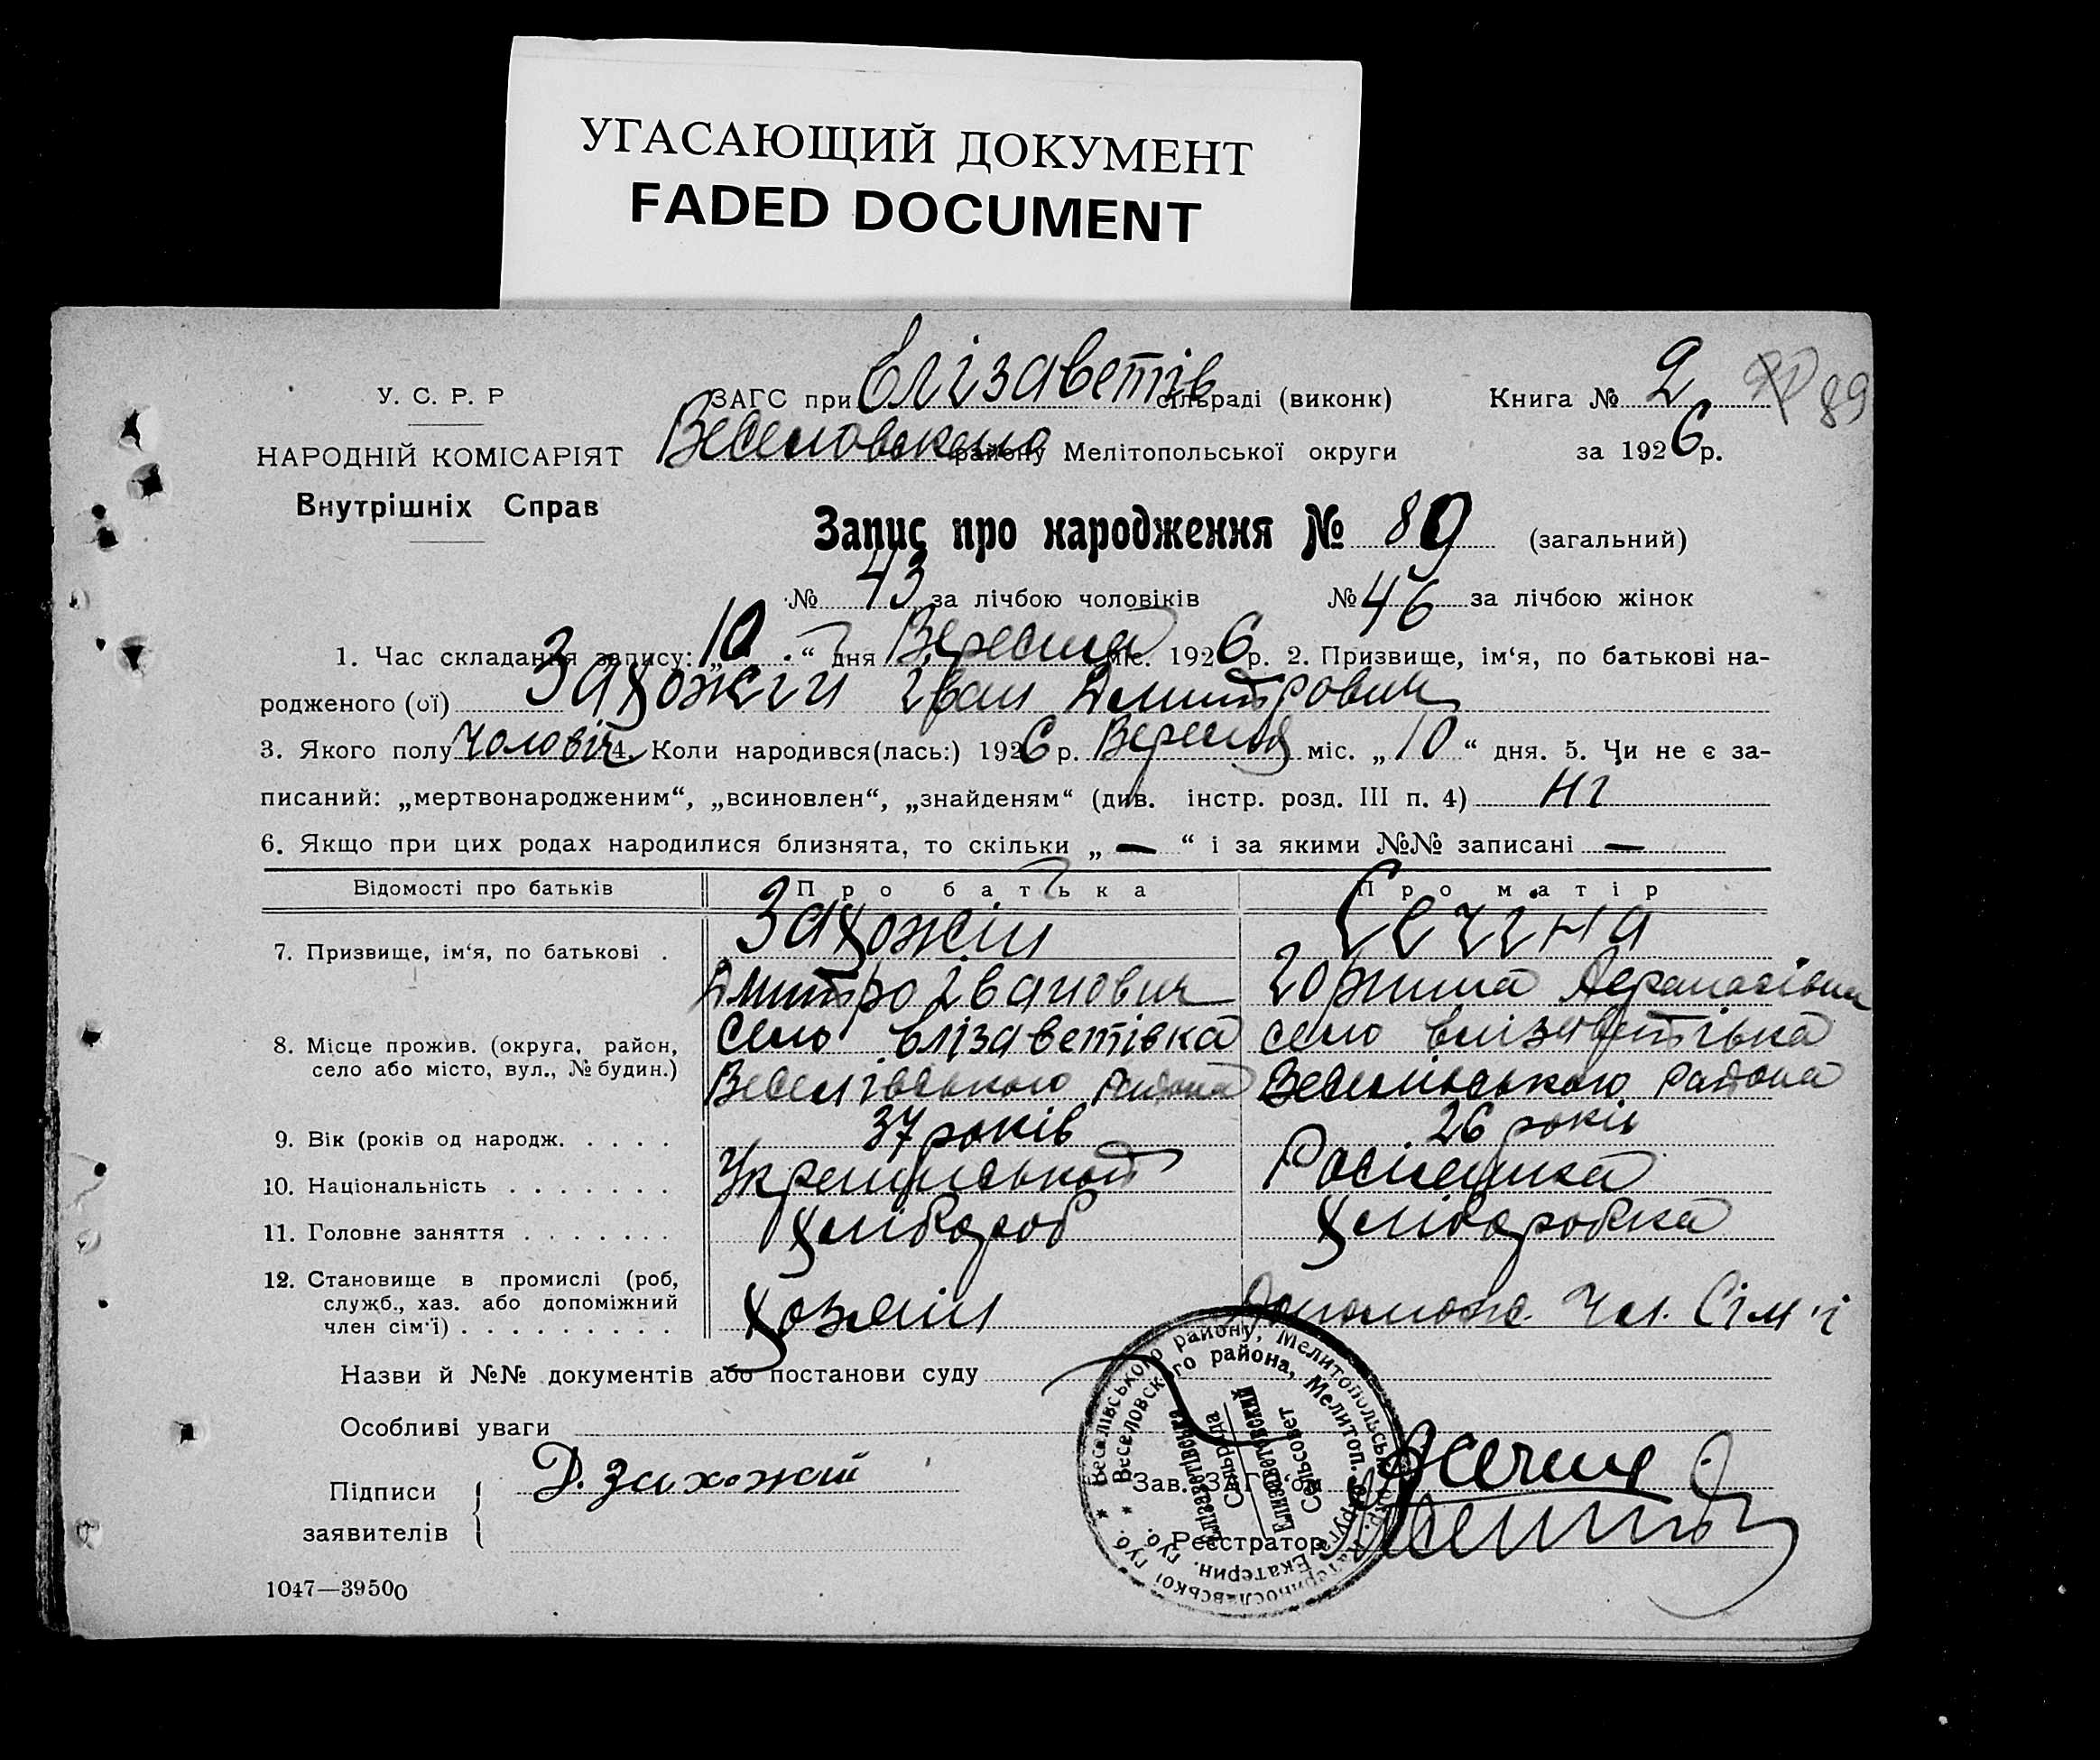 УГАСАЮЩИЙ ДОКУМЕНТ
FADED DOCUMENT
У. С. Р. Р
НАРОДНІЙ КОМІСАРІЯТ
Внутрішніх Справ
ЗАГС при Єлізаветів сільраді (виконк)
району Мелітопольської округи
Книга № 2
89
за 1926 р.
Запис про народження № 89 (загальний)
№ 43 за лічбою чоловіків № 46 за лічбою жінок
1. Час складання запису: „10“ дня Вересня міс. 1926 р. 2. Призвище, ім‘я, по батькові на-
родженого (ої) Захожій Іван Дмитрович
3. Якого полу Чоловіч 4. Коли народився(лась:) 1926 р. Вересня міс. „10“ дня. 5. Чи не є за-
писаний: „мертвонародженим“, „всиновлен“, „знайденям“ (див. інстр. розд. III п. 4) Ні
6. Якщо при цих родах народилися близнята, то скільки „—“ і за якими №№ записані —
Відомості про батьків Про батька Про матір
7. Призвище, ім‘я, по батькові . Захожій Сечіна
Дмитро Іванович Афанасівна
8. Місце прожив. (округа, район, село Єлізаветівка село Єлізаветівка
село або місто, вул., № будин.) Веселівського района Веселівського района
9. Вік (років од народж. . . . . 37 років 26 років
10. Національність . . . . . . . Росіянка
11. Головне заняття . . . . . . . Хлібороб Хліборобка
12. Становище в промислі (роб,
служб., хаз. або допоміжний
член сім‘ї) . . . . . . . . . Хозяїн Допомож. Чл. Сім'ї
Назви й №№ документів або постанови суду
Особливі уваги
Підписи
заявителів
Д. Захожай
Зав. ЗАГС‘ом
Реєстратор
* Веселівського району, Мелитопольськ. Катеринославської губ.
* Веселовского района, Мелитоп. округа Екатерин. губ.
Єлізаветівська
Сільрада
Елизаветовский
Сельсовет
1047—39500